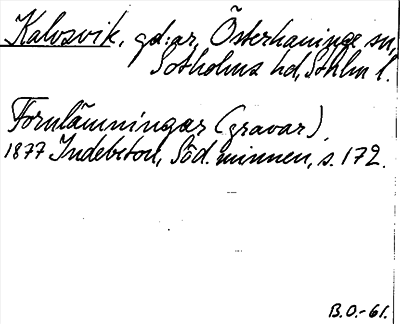 Kalvsvik, gd:ar, Österhaninge sn,
Sotholms hd, Sthlm l.
Fornlämningar (gravar).
1877 Indebetou, Söd. minnen, s. 172.
B.O.-61.